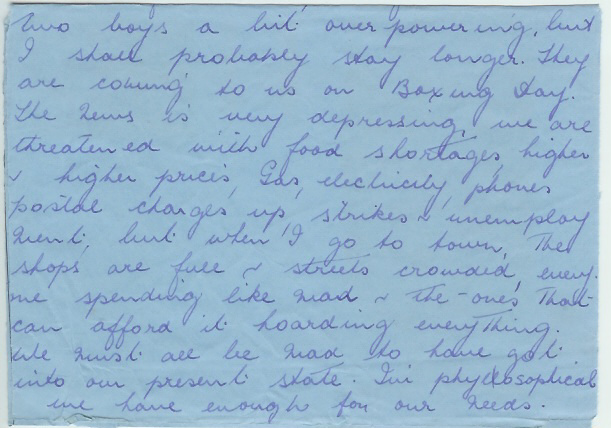 two boys a bit over powering, but
I shall probably stay longer. They
are coming to us on Boxing Day.
The News is very depressing, we are
threatened with food shortages, higher
& higher prices, Gas, electricity, phones
postal charges up, strikes & unemploy
ment, but when I go to town, The
shops are full & streets crowded, every
one spending like mad & the-ones That
can afford it hoarding everything.
We must all be mad to have got
into our present state. I'm phylosophical
we have enough for our needs.